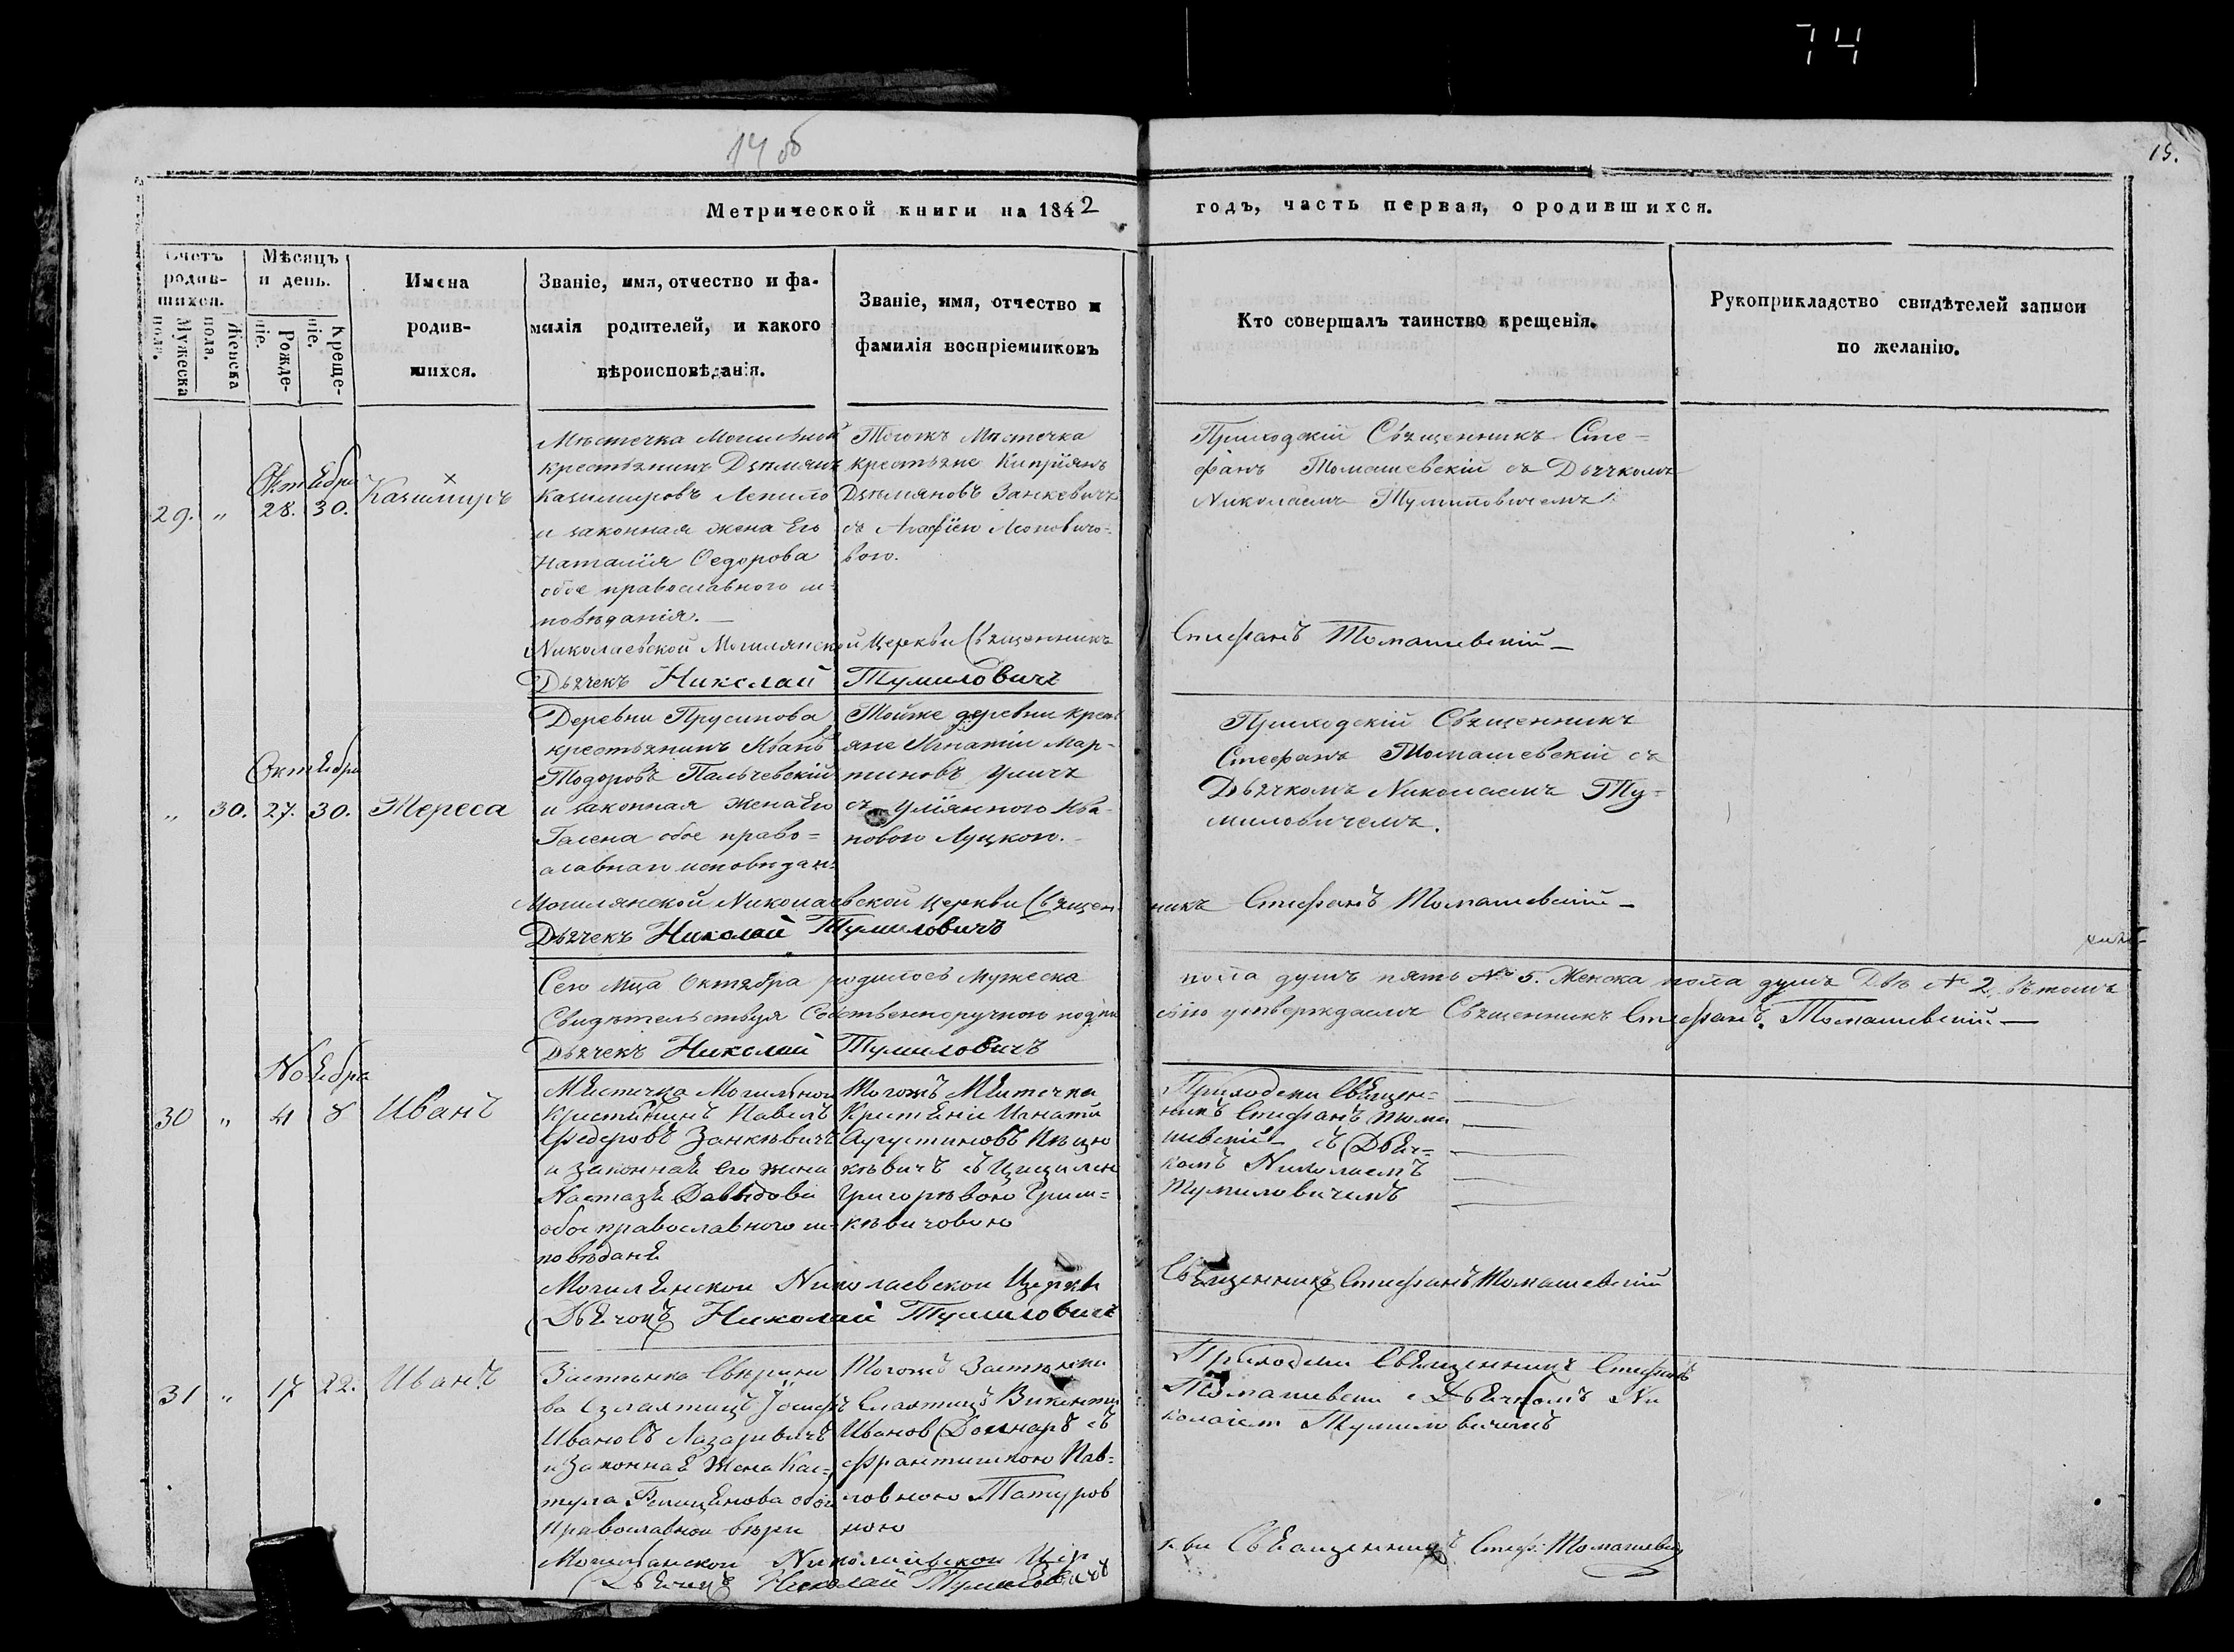 74
14 об
15.
Метрической книги на 1842 годъ, часть первая, о родившихся.
Счетъ родив-шихся.
Мужеска пола.
Женска пола.
Мѣсяцъ и день.
Рожде-ніе.
Креще-ніе.
Имена
родив-
шихся.
Званіе, имя, отчество и фа-
милія родителей, и какого
вѣроисповѣданія.
Званіе, имя, отчество и
фамилія воспріемниковъ
Кто совершалъ таинство крещенія.
Рукоприкладство свидѣтелей записи
по желанію.
Октября
29. " 28. 30.
Казимиръ
Мѣстечка Могильной
крестьянинъ Демянъ
Казимировъ Лепило
и законная жена Его
Наталія Федорова
обое православного ис-
повѣданія.
Тогожъ Мѣстечка
крестьяне Кипріянъ
Демяновъ Занкевичъ
съ Агафіею
вою.
Приходскій Священникъ Сте-
фанъ Томашевскій съ Дьячкомъ
Николаемъ Тумиловичемъ
Николаевской Могилянской Церкви Священникъ Стефанъ Томашевскій
Дьячекъ Николай Тумиловичъ
Октября
" 30. 27. 30.
Тереса
Деревни Прусинова
крестьянинъ Иванъ
Тодоровъ Пальчевскій
и законная жена Его
Галена обое право-
славнаго исповедан.
Тойже деревни крест
яне Игнатій Мар-
тиновъ Уличъ
съ Уліянною Ива-
новою Луцкою.
Приходскій Священникъ
Стефанъ Томашевскій съ
Дьячкомъ Николаемъ Ту-
миловичемъ.
Могилянской Николаевской Церкви Священникъ Стефанъ Томашевскій
Дьячекъ Николай Тумиловичъ
Сего Мца Октября родилось Мужеска пола душъ пять № 5. Женска пола душъ Двѣ № 2. въ томъ
Свидѣтельствуя Собственноручною подписію утверждаемъ Священникъ Стефанъ Томашевскій
Дьячекъ Николай Тумиловичъ
Ноября
30 " 4 8
Иванъ
Местечка Могильной
Крестянинъ Павелъ
Федоровъ Занкевичъ
и законная его жена
Настазя Давыдова
обое православного ис-
поведаня
Тогожъ Местечка
Крестяне Игнатій
Аугустиновъ
кевичъ съ Цецилею
Григоревою Грин-
кевичовою
Приходски Священ-
никъ Стефанъ Тома
шевскій съ Дьяч-
комъ Николаемъ
Тумиловичемъ
Могилянской Николаевской Церкви Священникъ Стефанъ Томашевскій
Дьячокъ Николай Тумиловичъ
31 " 17 22.
Иванъ
Застѣнка Сверино
ва Шляхтицъ Іосифъ
Ивановъ Лазаревичъ
и Законная Жена Кас-
тула Фелицянова обое
православной веры
Тогожъ Застенка
Шляхтицъ Викентій
Иванов Домнаръ съ
Франтишкою Пав-
ловною Татуров
ною
Приходски Священникъ Стефанъ
Томашевски с Дьячкомъ Ни
колаем Тумиловичемъ
Могилянской Николаевской Церкви Священникъ Стеф. Томашевски
Дьячекъ Николай Тумиловичъ